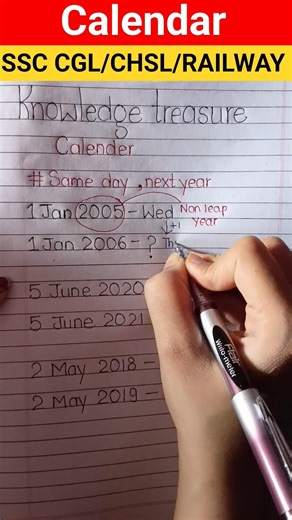 Calendar
SSC CGL/CHSL/RAILWAY
Knowledge treasure
Calender
#Same day, next year
1 Jan 2005 - Wed Non leap year
↓+1
1 Jan 2006 - ? Th
5 June 2020
5 June 2021
2 May 2018 -
2 May 2019 -
Flair
Writo-meter